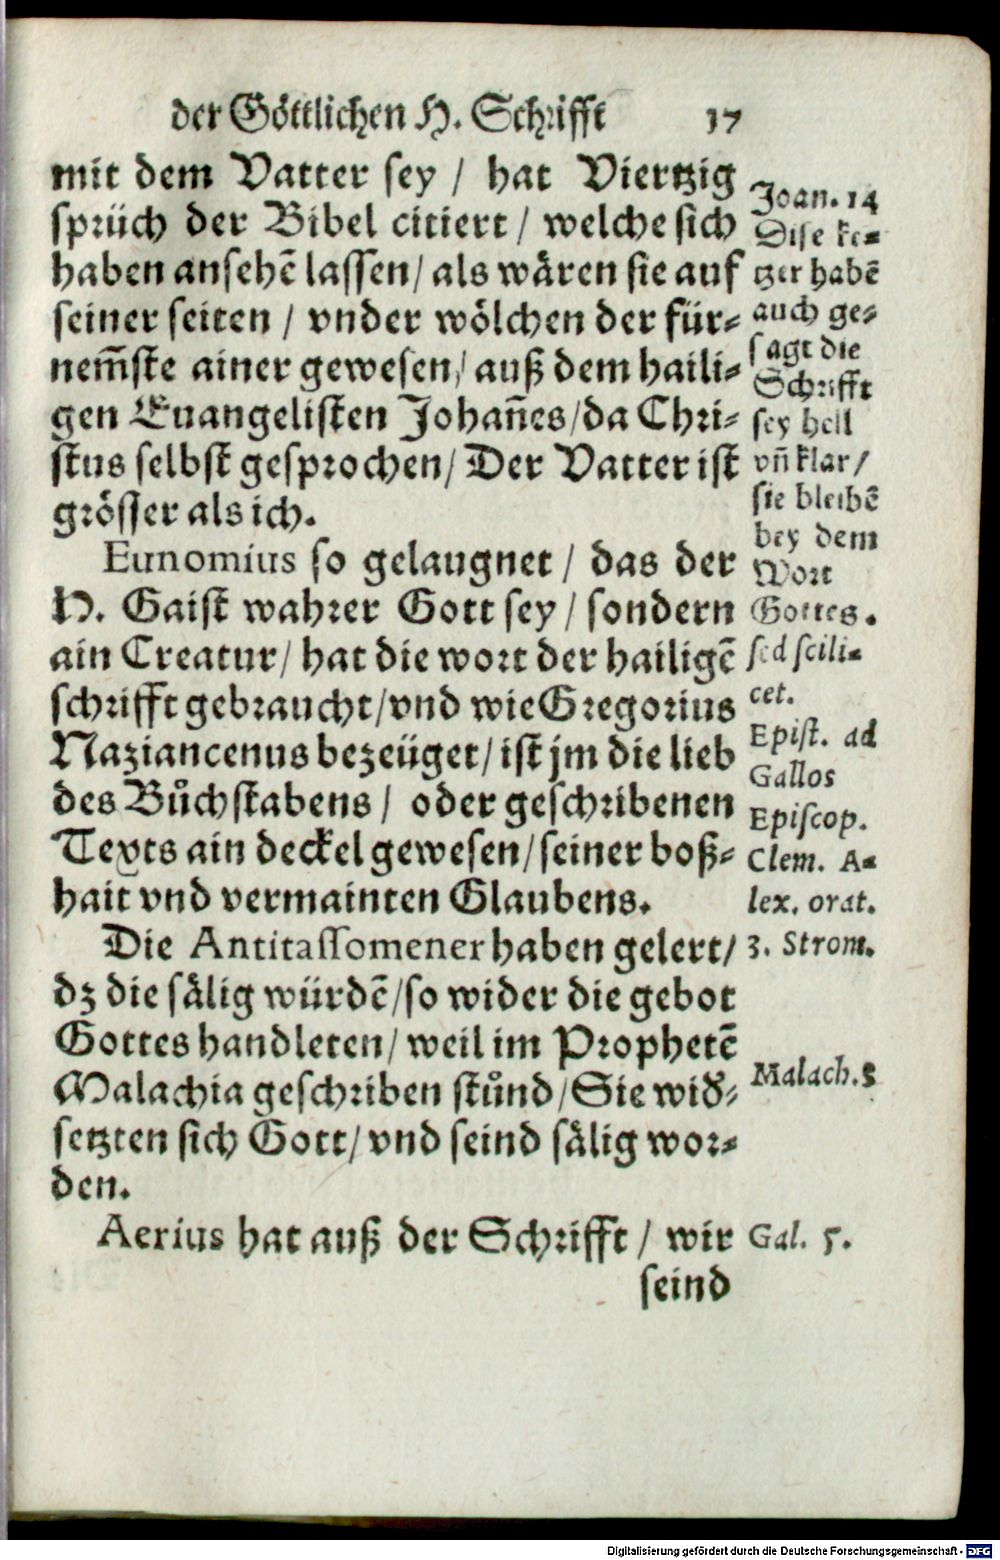 der Göttlichen H. Schrifft 17
mit dem Vatter sey / hat Viertzig
sprüch der Bibel citiert / welche sich
haben ansehē lassen / als wären sie auf
seiner seiten / vnder wölchen der für⸗
nem̄ste ainer gewesen / auß dem haili⸗
gen Euangelisten Johan̄es / da Chri⸗
stus selbst gesprochen / Der Vatter ist
grösser als ich.
Eunomius so gelaugnet / das der
H. Gaist wahrer Gott sey / sondern
ain Creatur / hat die wort der hailigē
schrifft gebraucht / vnd wie Gregorius
Naziancenus bezeüget / ist jm die lieb
des Bůchstabens / oder geschribenen
Texts ain deckel gewesen / seiner boß⸗
hait vnd vermainten Glaubens.
Die Antitassomener haben gelert /
dz die sälig würdē / so wider die gebot
Gottes handleten / weil im Prophetē
Malachia geschriben stůnd / Sie wid⸗
setzten sich Gott / vnd seind sälig wor⸗
den.
Aerius hat auß der Schrifft / wir
seind
Joan. 14
Dise ke⸗
tzer habē
auch ge⸗
sagt die
Schrifft
sey hell
vn̄ klar /
sie bleibē
bey dem
Wort
Gottes.
sed scili⸗
cet.
Epist. ad
Gallos
Episcop.
Clem. A⸗
lex. orat.
3. Strom.
Malach. 3
Gal. 5.
Digitalisierung gefördert durch die Deutsche Forschungsgemeinschaft - DFG